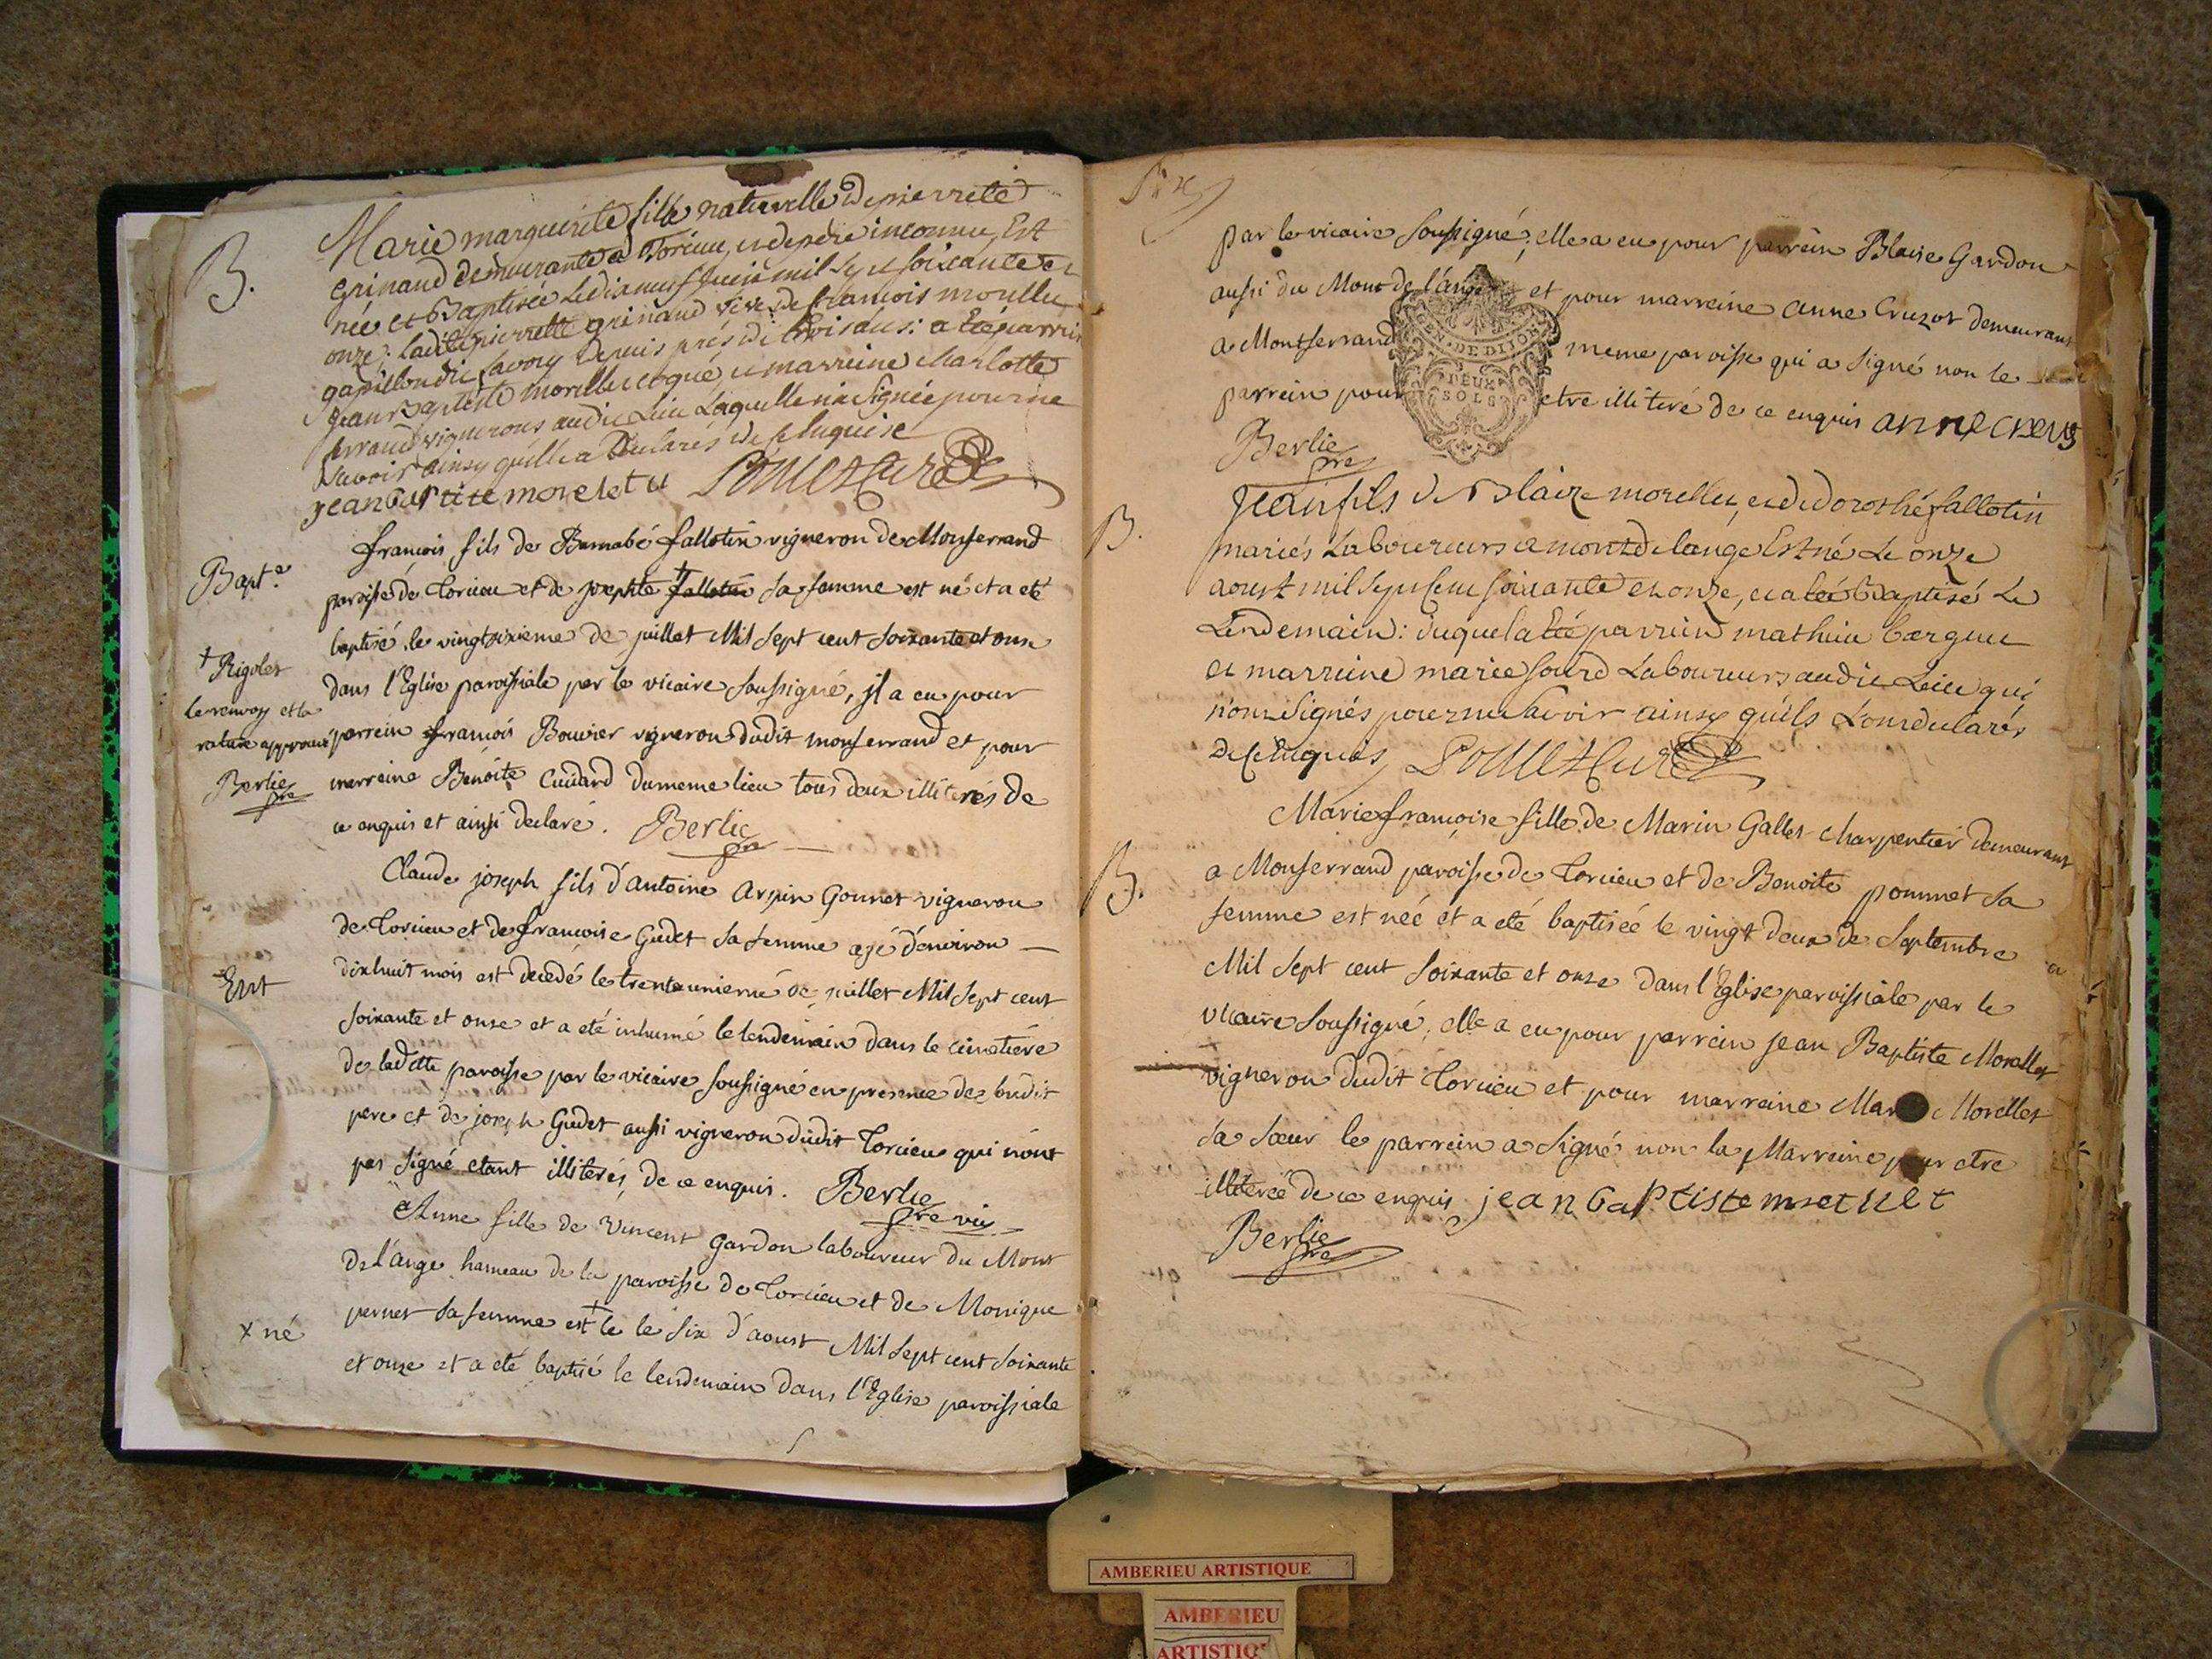 B.
Marie marguerite fille naturelle de pierrete
Grinand demeurante a Torcieu, et de pere inconnu, Est
née et Baptisée Le dix neuf juin mil sept soixante et
onze: ladite pierrette grinand veve de francois morellu
gapillon dit savoy depuis près de trois ans: a Eté parrin
jean Baptiste morellu coque, et marreine charlotte
errand vignerons audit Lieu Laquelle n'a signée pour ne
scavoir ainsy qu'elle a Declarés de ce Enquise
jean baptite morelet u
francois fils de Barnabé fallotin vigneron de Monferrand
Bapt.e
paroisse de Torcieu et de josephte fallotin sa femme est né et a eté
baptisé le vingtsixieme de juillet Mil sept cent soixante et onze
† Rigolet
dans l'Eglise paroissiale par le vicaire soussigné, jl a eu pour
le renvoy et la
rature approuvé
parrein francois Bouvier vigneron dudit monferrand et pour
Berlie pre
marreine Benoite Cuivard du meme lieu tous deux illiterés de
ce enquis et ainsi declaré. Berlie pre
Claude joseph fils d'antoine Arpin Gonnet vigneron
de Torcieu et de francoise Gudet sa femme agé d'environ
Ent
dixhuit mois est decedé le trenteunieme de juillet Mil sept cent
soixante et onze et a eté inhumé le lendemain dans le cimetiere
de ladette paroisse par le vicaire soussigné en presence de sudit
pere et de joseph Gudet aussi vigneron dudit Torcieu qui n'ont
pas signé etant illiterés de ce enquis. Berlie pre vic
Anne fille de Vincent Gardon laboureur du Mont
de l'ange hameau de la paroisse de Torcieu et de Monique
x né
pernet sa femme est le le six d'aoust Mil sept cent soixante
et onze et a eté baptisé le lendemain dans l'Eglise paroissiale
par le vicaire soussigné, elle a eu pour parrein Blaise Gardon
aussi du Mont de l'ange et pour marreine anne Cruzot demeurant
a Montferrand meme paroisse qui a signé non le
parrein pour etre illiteré de ce enquis anne creus
GEN. DE DIJON
DEUX
SOLS
Berlie pre
B.
Jean fils de Blaize morellet, et de dorothé fallotin
mariés Laboureurs a mont de lange Est né Le onze
aoust mil sept Cent soixante et onze, et a eté Baptisé Le
Lendemain: duquel a Eté parrein mathieu bergeu
et marreine marie sourd Laboureurs audit Lieu qui
n'ont signés pour ne scavoir ainsy qu'ils L'ont declarés
de ce Enquis
B.
Marie francoise fille de Marin Gallet charpentier demeurant
a Monferrand paroisse de Torcieu et de Benoite pommet sa
femme est née et a eté baptisée le vingt deux de septembre
Mil sept cent soixante et onze dans l'Eglise paroissiale par le
vicaire soussigné, elle a eu pour parrein jean Baptiste Morellet
vigneron dudit Torcieu et pour marreine Mar Morellet
sa sœur le parrein a signé non la Marreine pour etre
illiterée de ce enquis jean baptiste
Berlie pre
AMBERIEU ARTISTIQUE
AMBERIEU
ARTISTIQ